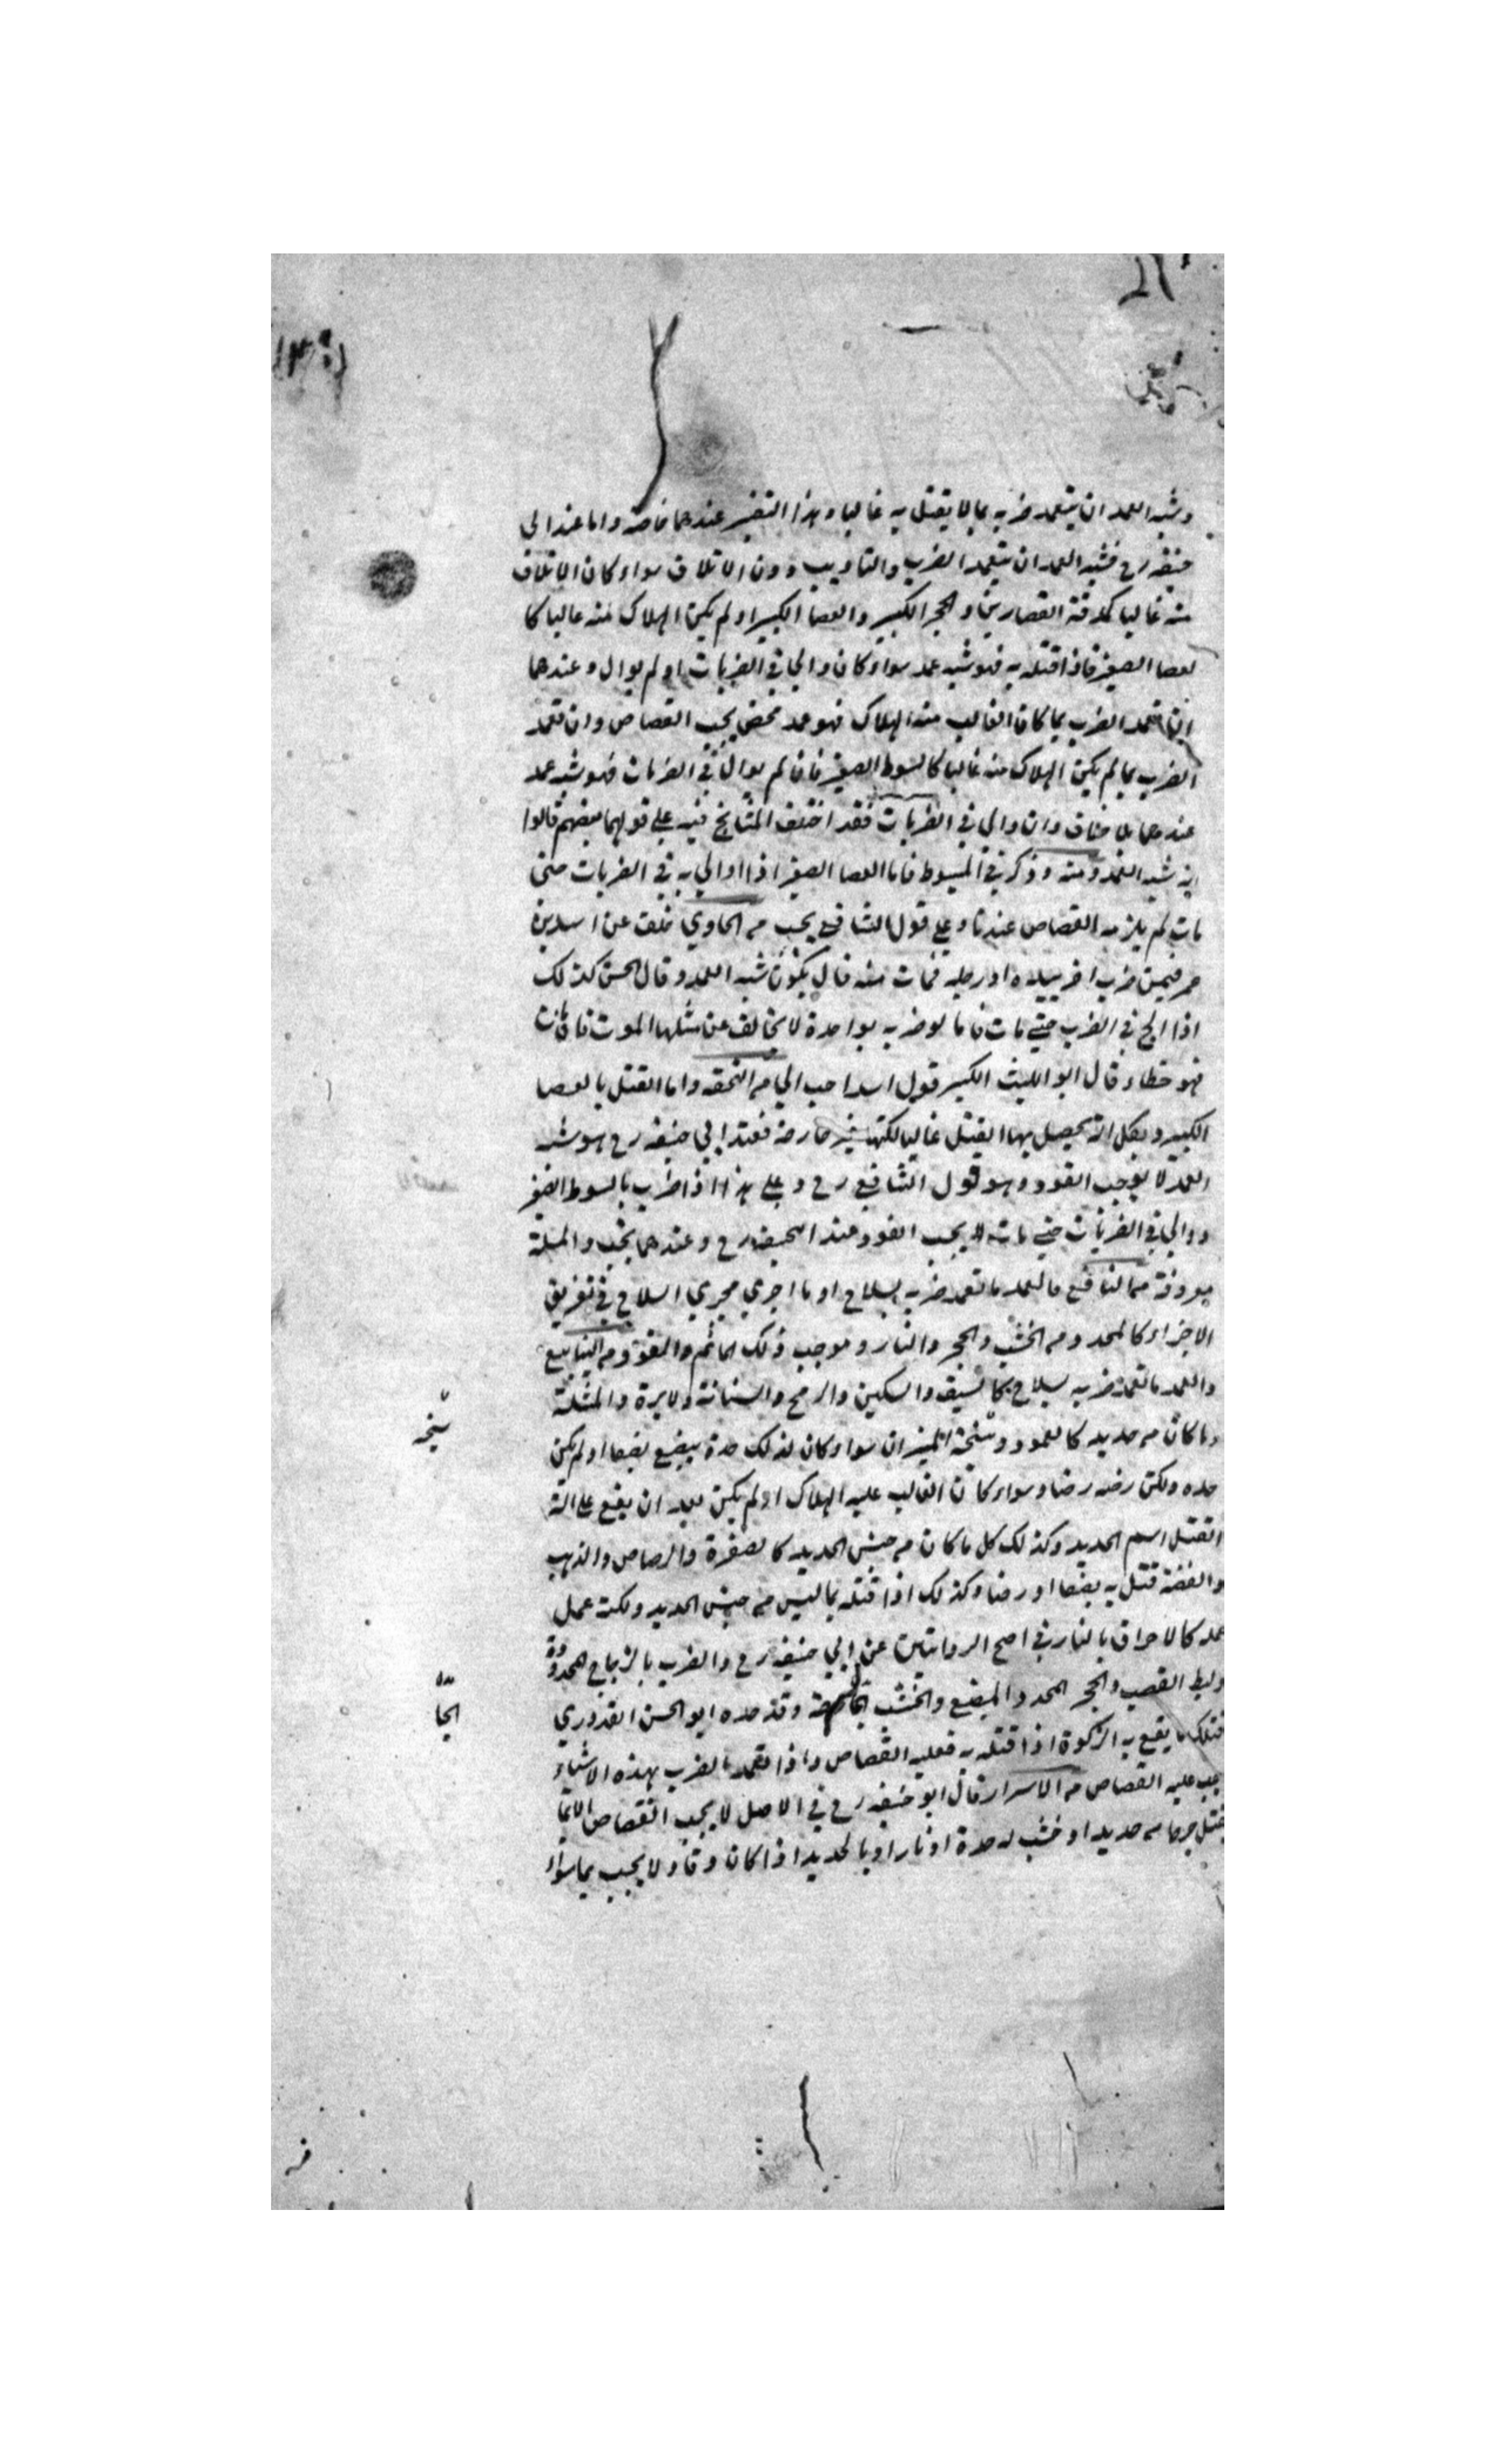 وشبه العمد ان يتعمد ضربه بما لا يقتل به غالبا وهذا التفسير عندهما خاصة واما عند ابي
حنيفه رح فشبه العمد ان يتعمد الضرب والتاديب دون الاتلاف سواء كان الاتلاف
منه غالبا كمدقة القصارين والحجر الكبير والعصا الكبير او لم يكن الهلاك منه غالبا كا
لعصا الصغير فاذا قتله به فهو شبه عمد سواء كان والى في الضربات او لم يوال وعندهما
ان تعمد الضرب بما كان الغالب منه الهلاك فهو عمد محض يجب القصاص وان تعمد
الضرب بما لم يكن الهلاك منه غالبا كالسوط الصغير فان لم يوال في الضربات فهو شبه عمد
عندهما بلا خلاف وان والي في الضربات فقد اختلف المشايخ فيه علي قولهما بعضهم قالوا
انه شبه العمد ومنه وذكر في المبسوط فاما العصا الصغير اذا والي به في الضربات حتى
مات لم يلزمه القصاص عندنا وعلي قول الشافعي يجب من الحاوي خلف عن اسد بن
عمر فيمن ضرب اخر بيده او رجله فمات منه قال يكون شبه العمد وقال الحسن كذلك
اذا الح في الضرب حتي مات فاما لو ضربه بواحدة لا يخالف عن مثلها الموت فان مات
فهو خطاء وقال ابو الليث الكبير قول اسد احب الي من التحفه واما القتل بالعصا
الكبير وبكل الة يحصل بها القتل غالبا لكنها غير جارحة فعند ابي حنيفه رح هو شبه
العمد لا يوجب القود وهو قول الشافعي رح وعلي هذا اذا ضرب بالسوط الصغير
ووالي في الضربات حتي مات لا يجب القود عند ابيحنيفه رح وعندهما يجب والمسئلة
معروفة من النافع فالعمد ما تعمد ضربه بسلاح او ما اجري مجري السلاح في تفريق
الاجزاء كالمحدد من الخشب والحجر والنار وموجب ذلك المأثم والقود من الينابيع
والعمد ما تعمد ضربه بسلاح كالسيف والسكين والرمح والسنانة والابرة والمسلة
وما كان من حديد كالعمود وسنجة الميزان سواء كان لذلك حدة يبضع بضعا او لم يكن
حده ولكن رضه رضا وسواء كان الغالب عليه الهلاك او لم يكن بعد ان يقع علي الة
القتل اسم الحديد وكذلك كل ما كان من جنس الحديد كالصفرة والرصاص والذهب
والفضة قتل به بضعا او رضا وكذلك اذا قتله بما ليس من جنس الحديد ولكنه عمل
عمله كالاحراق بالنار في اصح الروايتين عن ابي حنيفه رح والضرب بالزجاج المحدودة
وليط القصب والحجر المحدد والمبضع والخشب وقد حده ابو الحسن القدوري
فتلك ما يقع به الزكوة اذا قتله به فعليه القصاص واذا تعمد الضرب بهذه الاشياء
يجب عليه القصاص من الاسرار قال ابو حنيفه رح في الاصل لا يجب القصاص الا بما
يقتل جرحا من حديد او خشب له حدة او نار او بالحديد اذا كان دقا ولا يجب بما سواه